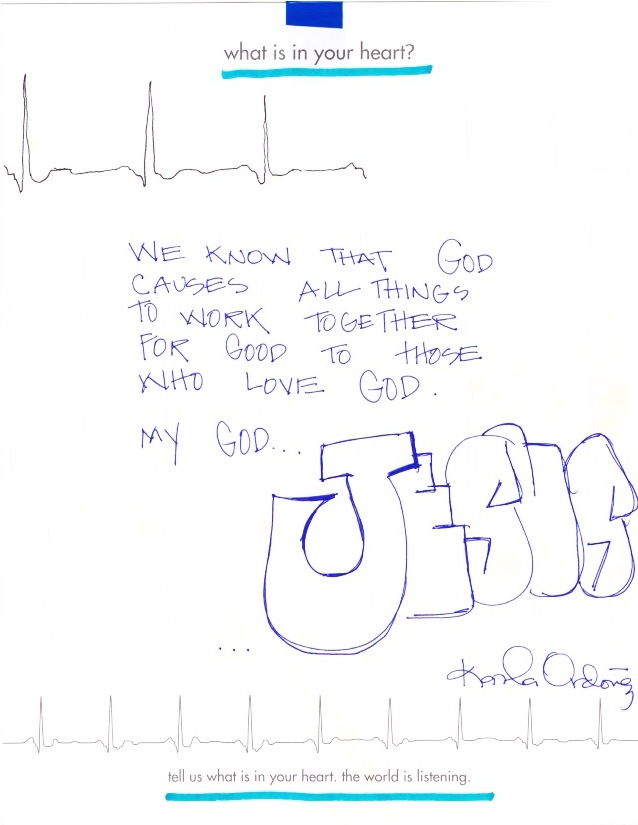 what is in your heart?
WE KNOW THAT GOD
CAUSES ALL THINGS
TO WORK TOGETHER
FOR GOOD TO THOSE
WHO LOVE GOD.
MY GOD... JESUS
...
Karla Ordoñez
tell us what is in your heart. the world is listening.